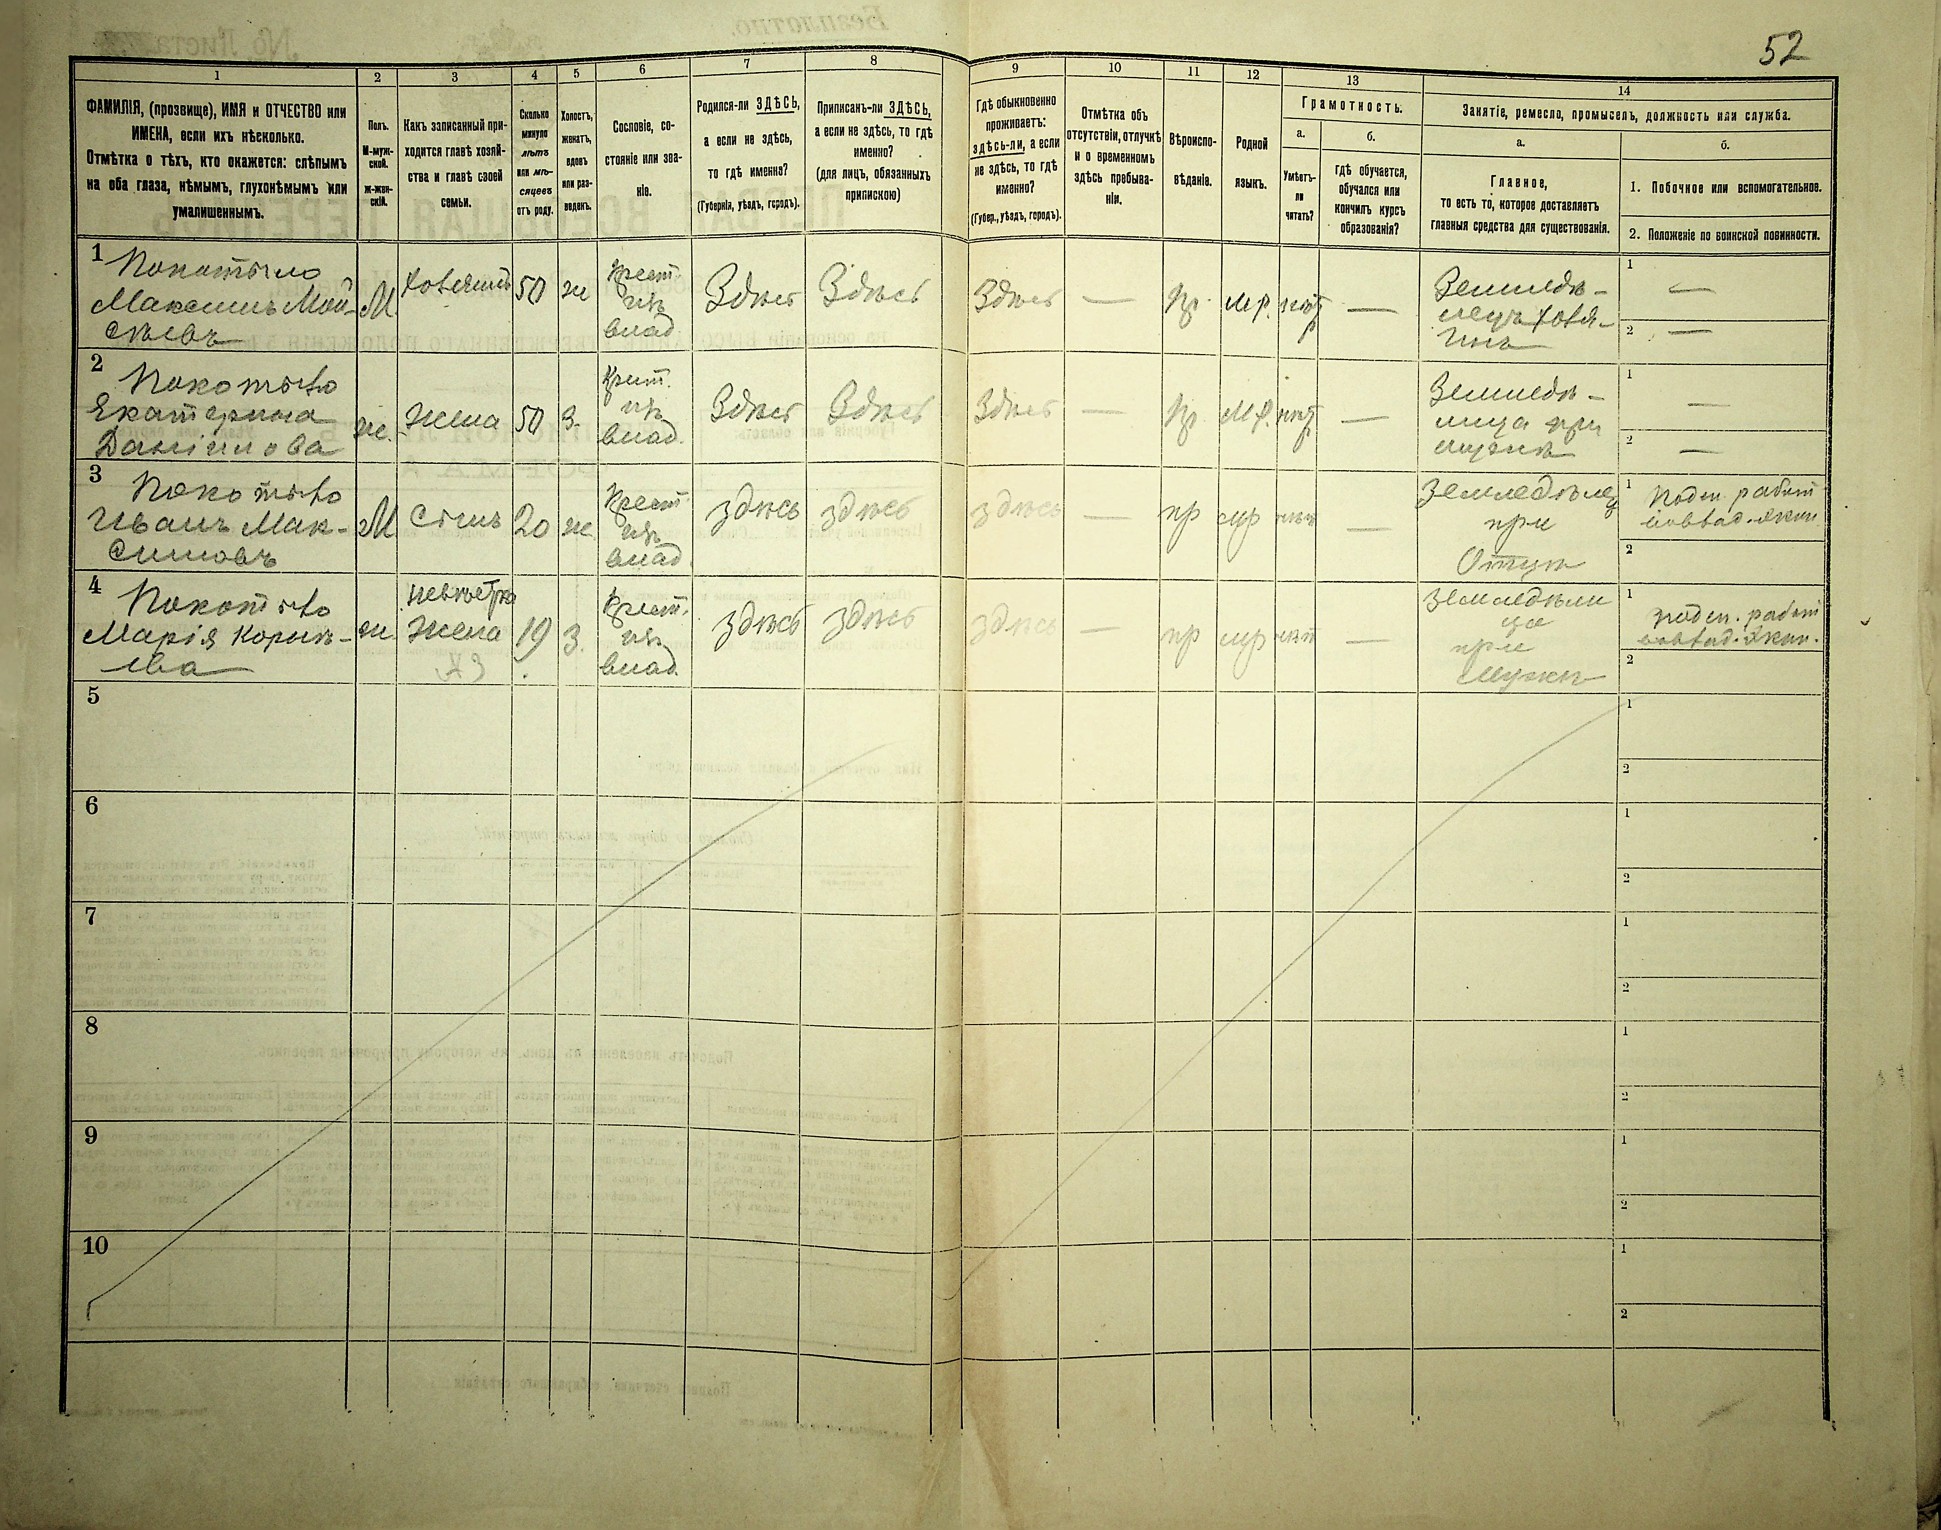 52
1
2
3
4
5
6
7
8
9
10
11
12
13
14
ФАМИЛІЯ, (прозвище), ИМЯ и ОТЧЕСТВО или
ИМЕНА, если ихъ нѣсколько.
Отмѣтка о тѣхъ, кто окажется: слѣпымъ
на оба глаза, нѣмымъ, глухонѣмымъ или
умалишеннымъ.
Полъ.
М-муж-
ской.
ж-жен-
скій.
Какъ записанный при-
ходится главѣ хозяй-
ства и главѣ своей
семьи.
Сколько
минуло
лѣтъ
или мѣ-
сяцевъ
отъ роду.
Холостъ,
женатъ,
вдовъ
или раз-
веденъ.
Сословіе, со-
стояніе или зва-
ніе.
Родился-ли ЗДѢСЬ,
а если не здѣсь,
то гдѣ именно?
(Губернія, уѣздъ, городъ).
Приписанъ-ли ЗДѢСЬ,
а если не здѣсь, то гдѣ
именно?
(для лицъ, обязанныхъ
припискою)
Гдѣ обыкновенно
проживаетъ:
здѣсь-ли, а если
не здѣсь, то гдѣ
именно?
(Губер., уѣздъ, городъ).
Отмѣтка объ
отсутствіи, отлучкѣ
и о временномъ
здѣсь пребыва-
ніи.
Вѣроиспо-
вѣданіе.
Родной
языкъ.
Грамотность.
а.
б.
Умѣетъ-
ли
читать?
гдѣ обучается,
обучался или
кончилъ курсъ
образованія?
Занятіе, ремесло, промыселъ, должность или служба.
а.
б.
Главное,
то есть то, которое доставляетъ
главныя средства для существованія.
1. Побочное или вспомогательное.
2. Положеніе по воинской повинности.
1
Покотыло
Максимъ Мой-
сѣевъ
М
Хозяинъ
50
ж
Крест.
изъ
влад.
Здѣсь
Здѣсь
Здѣсь
—
пр.
М.р.
нѣт
—
Земледѣ-
лецъ хозя-
инъ
1 —
2 —
2
Покотыло
Екатерина
Даніилова
ж.
Жена
50
з.
Крест.
изъ
влад.
Здѣсь
Здѣсь
Здѣсь
—
пр.
М.р.
нѣт
—
Земледѣ-
лица при
мужѣ
1 —
2 —
3
Покотыло
Иванъ Мак-
симовъ
М
Сынъ
20
ж
Крест.
изъ
влад.
здѣсь
здѣсь
здѣсь
—
пр
мр
нѣт
—
Земледѣлец
при
Отцѣ
1 Поден. работ
2
4
Покотыло
Марія Корнѣ-
ева
ж.
невѣстка
Жена
№3
19
з.
Крест.
изъ
влад.
здѣсь
здѣсь
здѣсь
—
пр
мр
нѣт
—
Земледѣли
ца
при
мужѣ
1 поден. работ
2
5
1
2
6
1
2
7
1
2
8
1
2
9
1
2
10
1
2